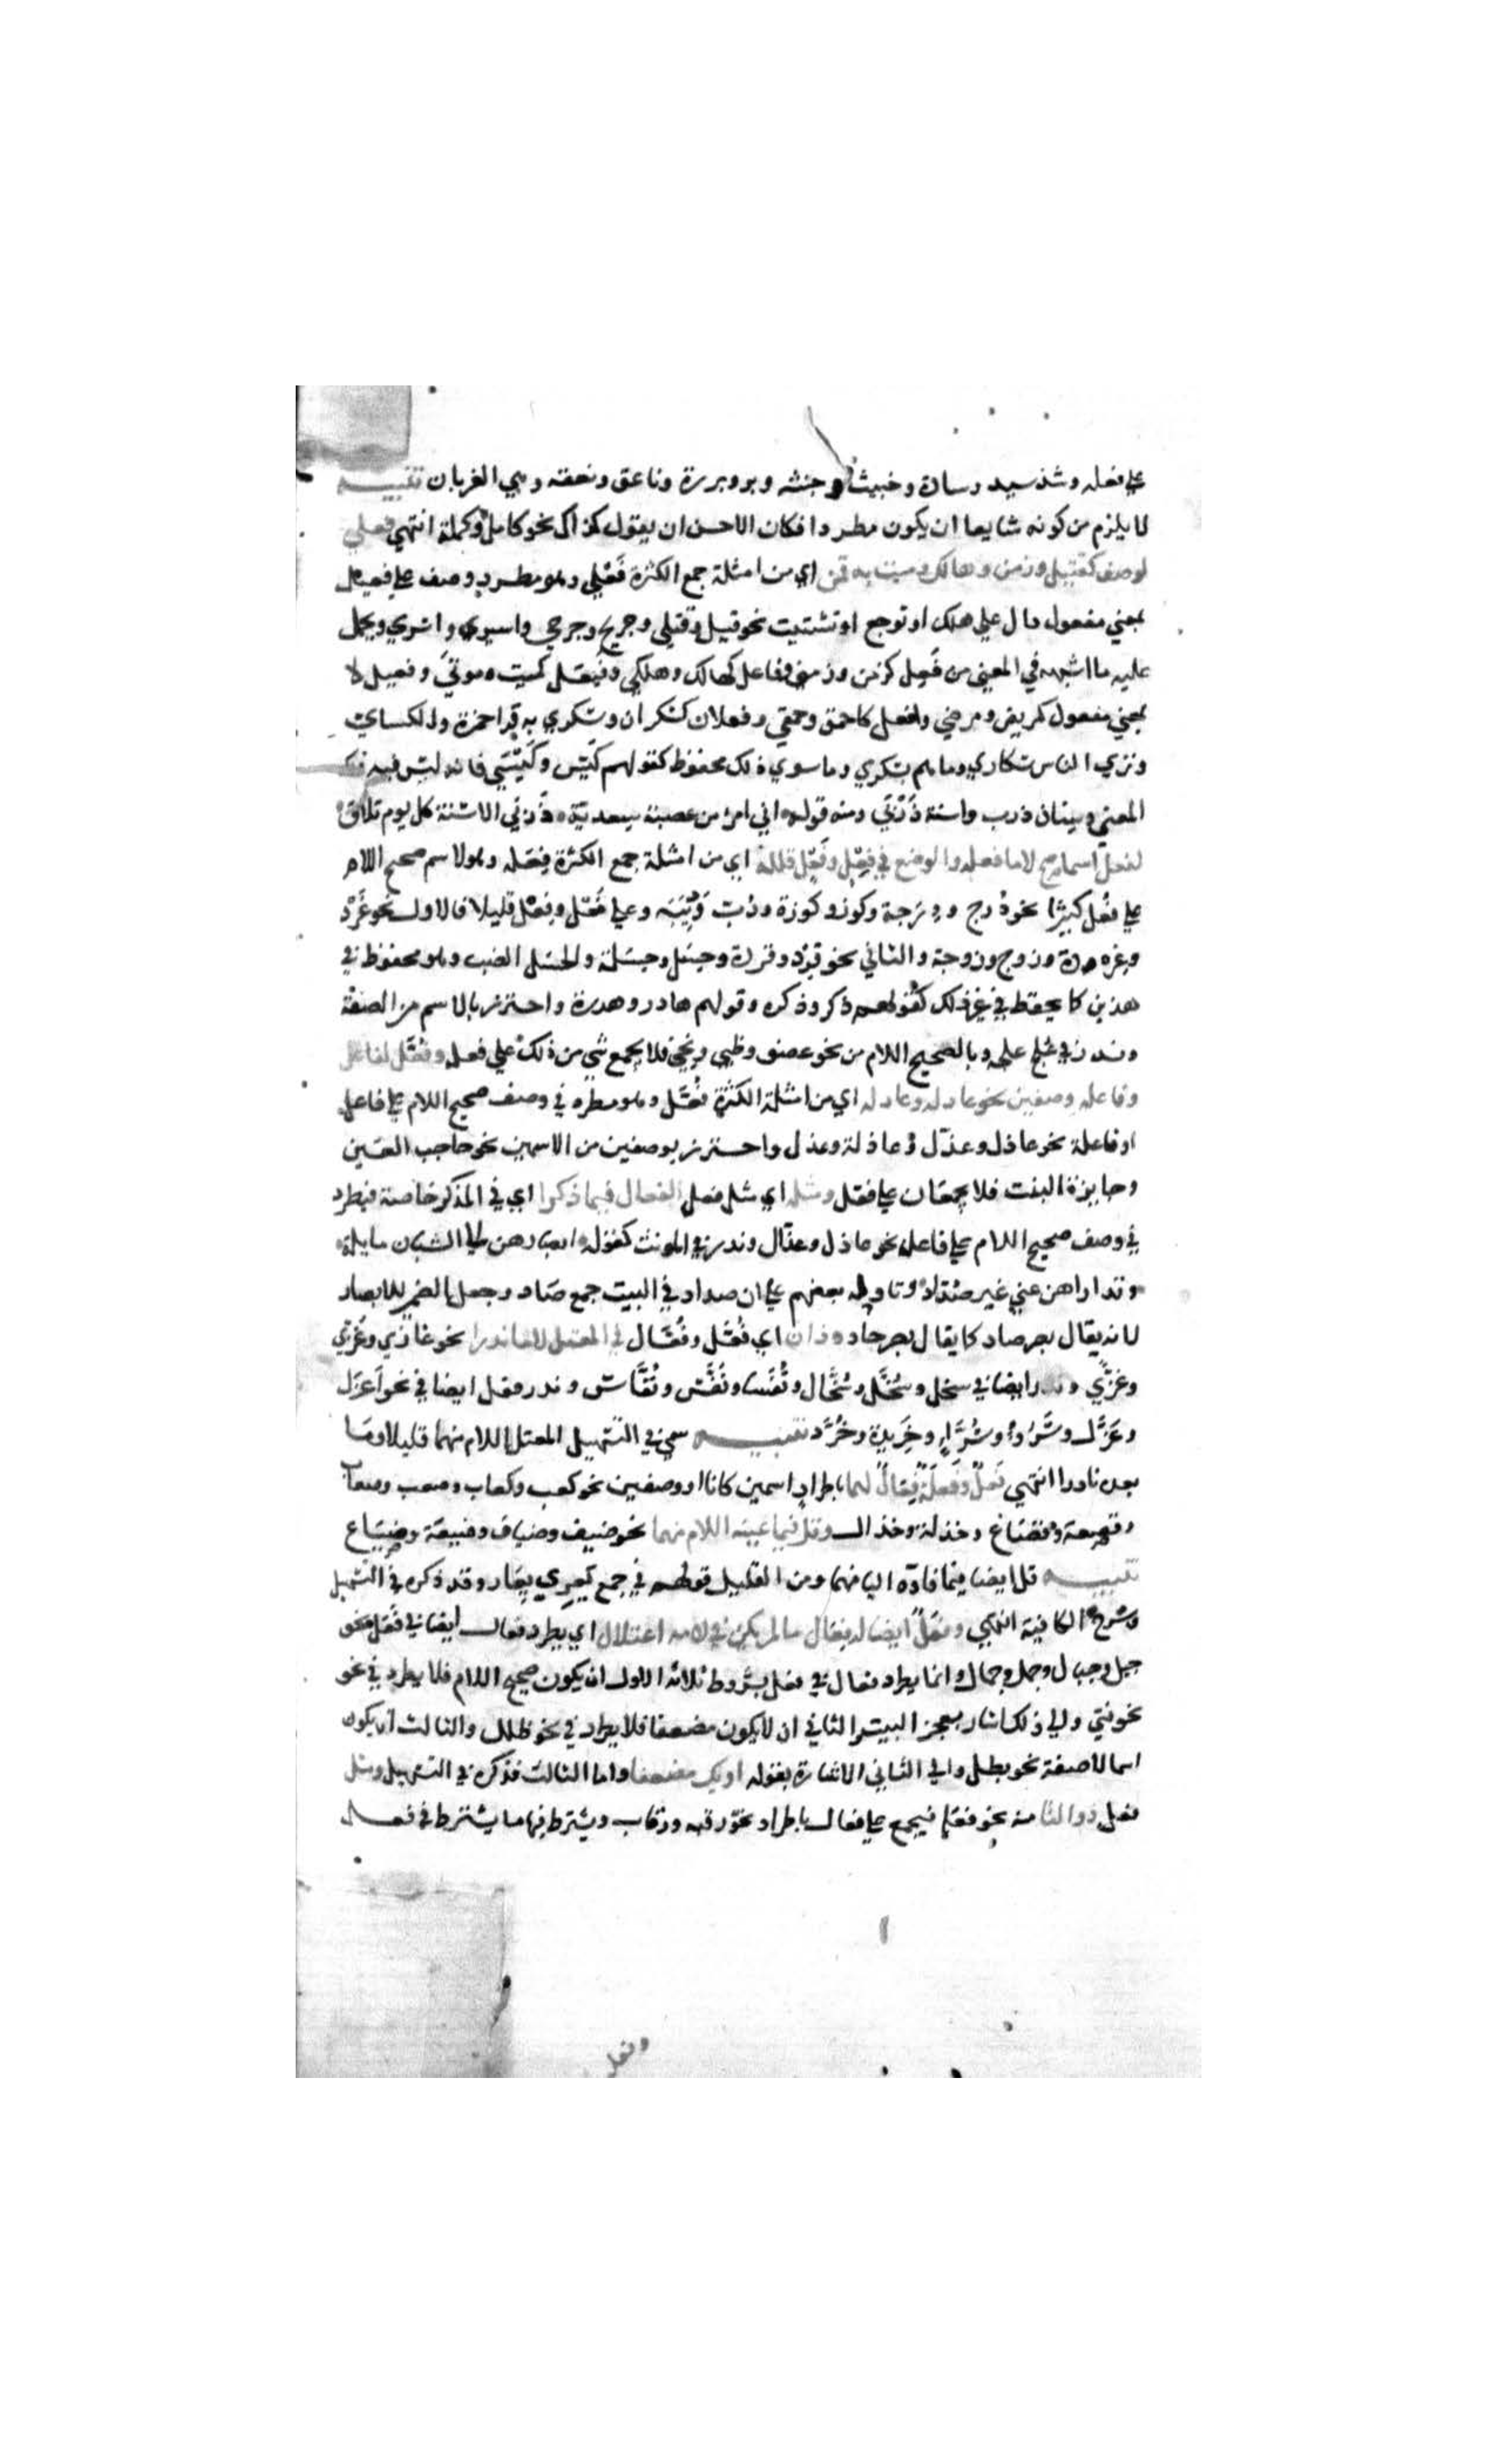 علي فعله وشذ سيد وسادة وخبيث وخبثه وبر وبررة وناعق ونعقه وهي الغربان تنبيه
لا يلزم من كونه شايعا ان يكون مطردا فكان الاحسن ان يقول كذاك نحو كامل وكملة انتهي فعلي
لوصف كقتيل وزمن وهالك وميت به قمن اي من امثلة جمع الكثرة فَعْلي وهو مطرد وصف علي فعيل
بمعني مفعول دال علي هلك او توجع او تشتيت نحو قتيل وقتلي وجريح وجرحي واسير واسري ويحمل
عليه ما اشبهه في المعني من فَعِل كزمن وزمني وفاعل كهالك وهلكي وفيعل كميت وموتي وفعيل لا
بمعني مفعول كمريض ومرضي وافعل كاحمق وحمقي وفعلان كسكران وسكري به قرا حمزة والكساي
وتري الناس سكاري وما هم بسكري وما سوي ذلك محفوظ كقولهم كَيّس وكَيْسَي فانه ليس فيه ذلك
المعني وسنان ذرب واسنة ذَرْبَي ومنه قوله اني امرؤ من عصبة سعدية ذَرْبَي الاسنة كل يوم تلاق
لفعل اسما صح لاما فعله والوضع في فِعْل وفَعْل قلله اي من امثلة جمع الكثرة فِعَله وهو لاسم صحيح اللام
علي فُعْل كثيرا نحو دُرج ودِرَجة وكوز وكوزة ودُب ودِبَبَه وعلي فَعْل وفِعْل قليلا فالاول نحو غَرْد
وغرده وزوج وزوجة والثاني نحو قِرْد وقردة وحِسْل وحِسَلة والحسل الضب وهو محفوظ في
هذين كما يحفظ في غير ذلك كقولهم ذكر وذكره وقولهم هادر وهدرة واحترز بالاسم من الصفة
وندر في عِلج علجه وبالصحيح اللام من نحو عضو وظبي ونحي فلا يجمع شي من ذلك علي فعله وفُعَّل لفاعل
وفاعله وصفين نحو عادل وعادله اي من امثلة الكثرة فُعَّل وهو مطرد في وصف صحيح اللام علي فاعل
او فاعلة نحو عاذل وعذّل وعاذلة وعذل واحترز بوصفين من الاسمين نحو حاجب العين
وجايزة البيت فلا يجمعان علي فعّل ومثله اي مثل فعل الفعال فيما ذكرا اي في المذكر خاصة فيطرد
في وصف صحيح اللام علي فاعل نحو عاذل وعذّال وندر في المونث كقوله ابصارهن الي الشبان مايلة
وقد اراهن عني غير صُدّاد وتاوله بعضهم علي ان صداد في البيت جمع صاد وجعل الضمير للابصار
لانه يقال بصر صاد كما يقال بصر حاد وذان اي فُعَّل وفُعَّال في المعتل لاما ندرا نحو غازي وغُزّي
وغزّي وندر ايضا في سخل وسُخَّل وسُخَّال ونُفَسا ونُفَّس ونُفَّاس وندر فعل ايضا في نحو اَعزَل
وعُزَّل وسَرُوء وسُرَّاء وخَرِيدة وخُرَّد تنبيه سمي في التسهيل المعتل اللام منهما قليلا وما
بعده نادرا انتهي فَعْلٌ وفَعْلَةٌ فِعَالٌ لهما باطراد اسمين كانا او وصفين نحو كعب وكعاب وصعب وصعاب
وقصعة وقصاع وخدلة وخدال وقلّ فيما عينه اللام منهما نحو ضيف وضياف وضيعة وضياع
تنبيه قل ايضا فيما فاوه اليا منهما ومن القليل قولهم في جمع يَعْر ويَعْرة يِعَار وقد ذكره في التسهيل
وشرح الكافية انتهي وفَعَلٌ ايضا له فِعَال ما لم يكن في لامه اعتلال اي يطرد فعال ايضا في فَعَل نحو
جبل وجبال وجمل وجمال وانما يطرد فعال في فعل بشروط ثلاثه الاول ان يكون صحيح اللام فلا يطرد في نحو
نحو فتي والي ذلك اشار بعجز البيت الثاني ان لا يكون مضعفا فلا يطرد في نحو طلل والثالث ان يكون
اسما لا صفة نحو بطل والي الثاني الاشارة بقوله او يك مضعفا واما الثالث فذكره في التسهيل ومثل
فعل ذو التا منه نحو فعَلة فيجمع علي فعال باطراد نحو رقبه ورقاب ويشترط فيها ما يشترط في فعل
وفعل